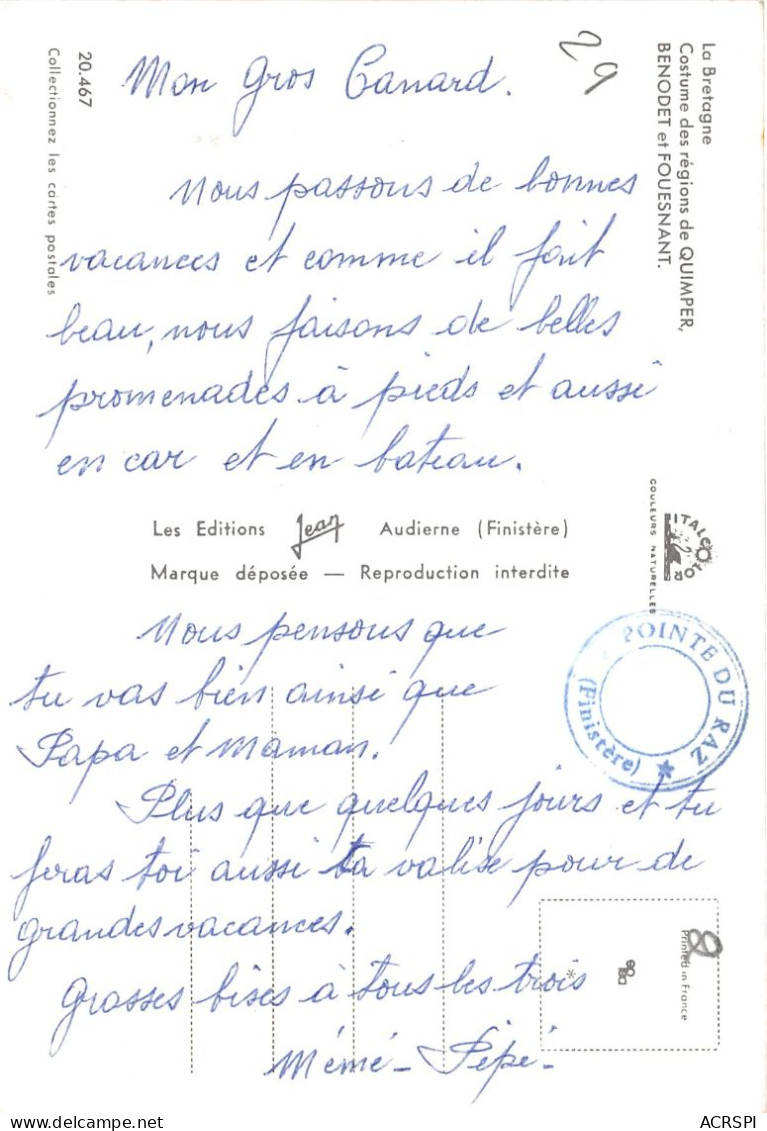 La Bretagne
Costume des régions de QUIMPER,
BENODET et FOUESNANT.
29
20.467
Collectionnez les cartes postales
Mon Gros Canard.
Nous passons de bonnes
vacances et comme il fait
beau, nous faisons de belles
promenades à pieds et aussi
en car et en bateau.
Les Editions Jean Audierne (Finistère)
Marque déposée — Reproduction interdite
ITALCOLOR
COULEURS NATURELLES
POINTE DU RAZ
(Finistère)
Nous pensons que
tu vas bien ainsi que
Papa et Maman.
Plus que quelques jours et tu
feras toi aussi ta valise pour de
grandes vacances.
Grosses bises à tous les trois
Mémé - Pépé -
8
Printed in France
ACRSPI